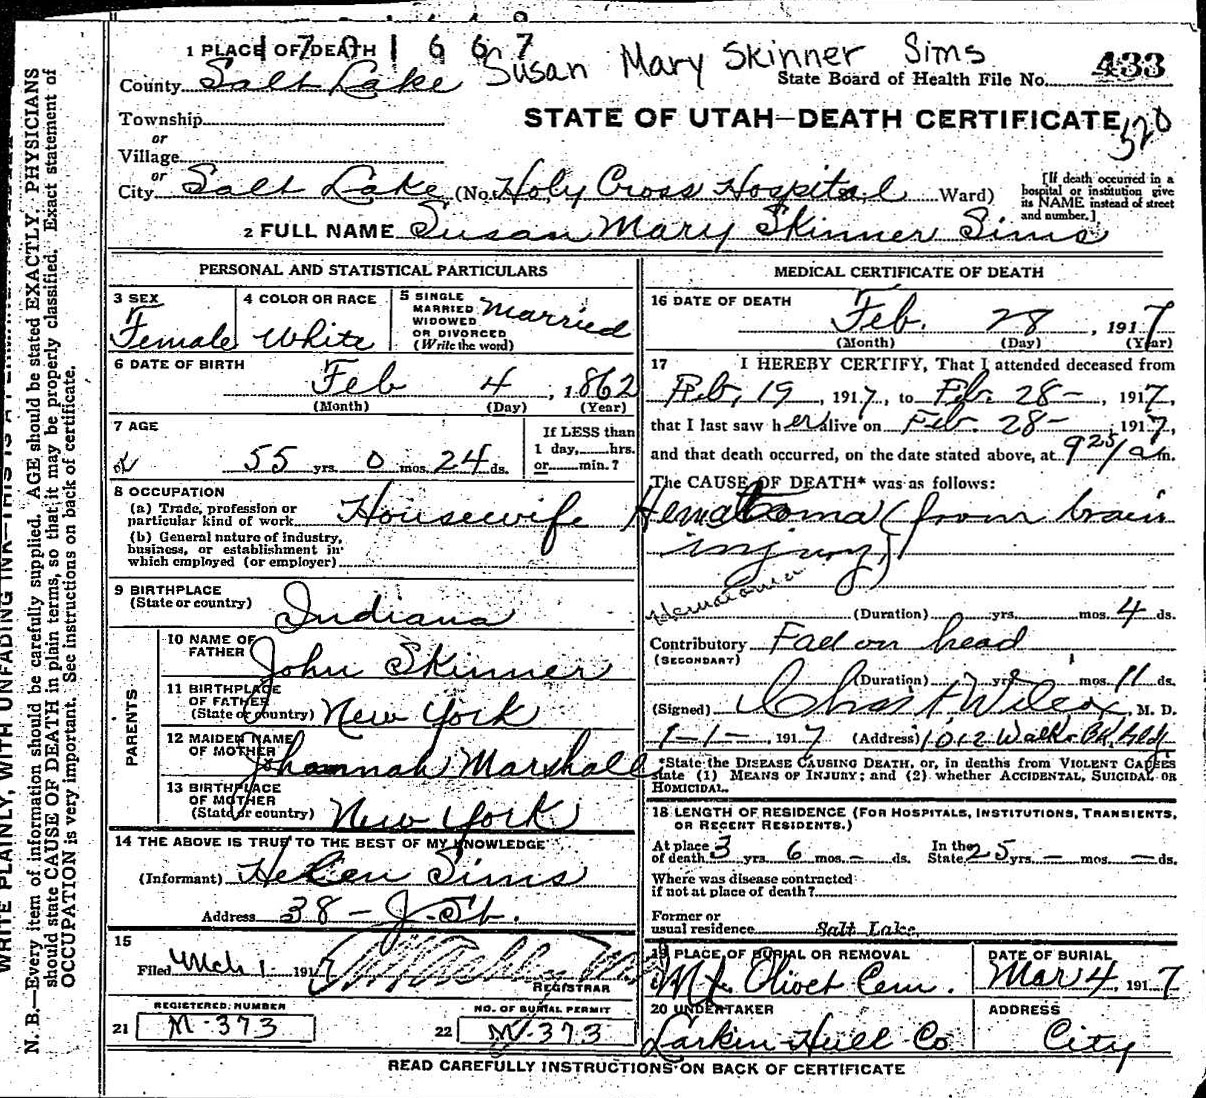 1 PLACE OF DEATH 1701667
Susan Mary Skinner Sims
County Salt Lake
State Board of Health File No. 433
Township
STATE OF UTAH—DEATH CERTIFICATE
520
or
Village
or
City Salt Lake (No. Holy Cross Hospital Ward)
[If death occurred in a
hospital or institution give
its NAME instead of street
and number.]
2 FULL NAME Susan Mary Skinner Sims
PERSONAL AND STATISTICAL PARTICULARS
3 SEX
Female
4 COLOR OR RACE
White
5 SINGLE
MARRIED
WIDOWED
OR DIVORCED
(Write the word)
Married
6 DATE OF BIRTH
Feb 4, 1862
(Month) (Day) (Year)
7 AGE
55 yrs. 0 mos. 24 ds.
If LESS than
1 day, hrs.
or min.?
8 OCCUPATION
(a) Trade, profession or
particular kind of work Housewife
(b) General nature of industry,
business, or establishment in
which employed (or employer)
9 BIRTHPLACE
(State or country) Indiana
PARENTS
10 NAME OF
FATHER John Skinner
11 BIRTHPLACE
OF FATHER
(State or country) New York
12 MAIDEN NAME
OF MOTHER Johannah Marshall
13 BIRTHPLACE
OF MOTHER
(State or country) New York
14 THE ABOVE IS TRUE TO THE BEST OF MY KNOWLEDGE
(Informant) Helen Sims
Address 38 - J. St.
15
Filed Mch 1 - 1917
REGISTRAR
REGISTERED NUMBER
21 M-373
NO. OF BURIAL PERMIT
22 M-373
MEDICAL CERTIFICATE OF DEATH
16 DATE OF DEATH
Feb. 28, 1917
(Month) (Day) (Year)
17 I HEREBY CERTIFY, That I attended deceased from
Feb. 19, 1917, to Feb. 28 -, 1917,
that I last saw her alive on Feb. 28 - 1917,
and that death occurred, on the date stated above, at 9 25/ a m.
The CAUSE OF DEATH* was as follows:
Hematoma (from brain
injury)
Hematoma
(Duration) yrs. mos. 4 ds.
Contributory Fall on head
(SECONDARY)
(Duration) yrs. mos. 11 ds.
(Signed) Chas. F. Wilcox, M. D.
1-1-, 1917 (Address) 1012 Walk. Bk. Bld.
*State the DISEASE CAUSING DEATH, or, in deaths from VIOLENT CAUSES
state (1) MEANS OF INJURY; and (2) whether ACCIDENTAL, SUICIDAL OR
HOMICIDAL.
18 LENGTH OF RESIDENCE (FOR HOSPITALS, INSTITUTIONS, TRANSIENTS,
OR RECENT RESIDENTS.)
At place
of death 3 yrs. 6 mos. - ds.
In the
State 25 yrs. - mos. - ds.
Where was disease contracted
if not at place of death?
Former or
usual residence Salt Lake
19 PLACE OF BURIAL OR REMOVAL
Mt. Olivet Cem.
DATE OF BURIAL
Mar 4 1917
20 UNDERTAKER
Larkin-Hull Co
ADDRESS
City
READ CAREFULLY INSTRUCTIONS ON BACK OF CERTIFICATE
WRITE PLAINLY, WITH UNFADING INK—THIS IS A
N. B.—Every item of information should be carefully supplied. AGE should be stated EXACTLY. PHYSICIANS
should state CAUSE OF DEATH in plain terms, so that it may be properly classified. Exact statement of
OCCUPATION is very important. See instructions on back of certificate.